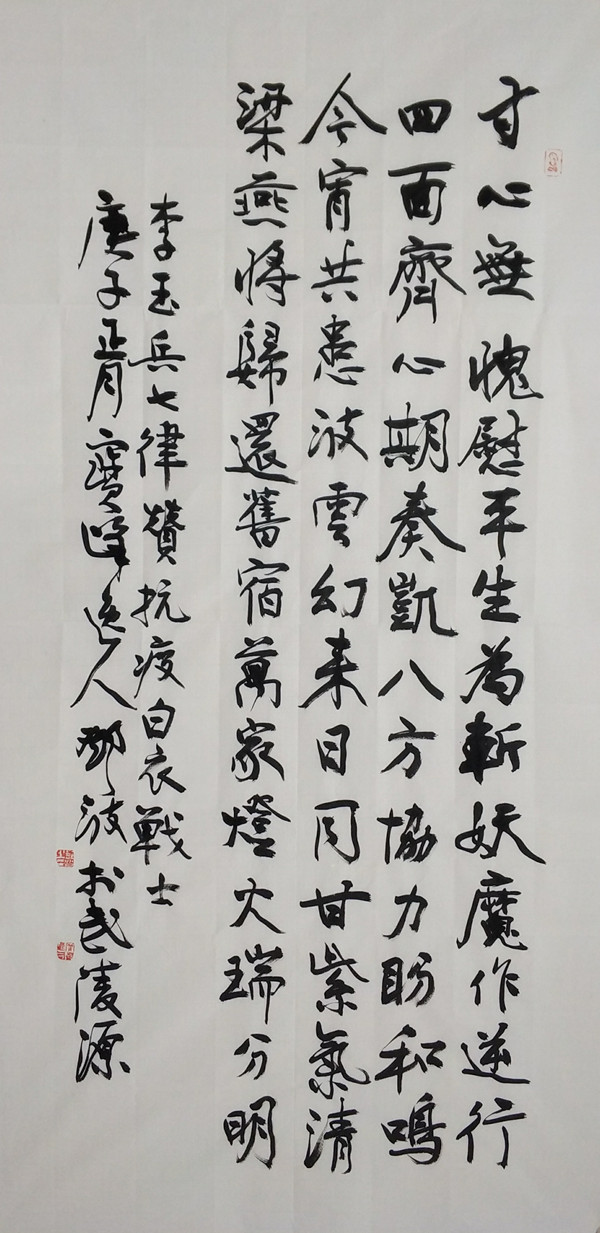 寸心無愧慰平生為斬妖魔作逆行
四面齊心期奏凱八方協力盼和鳴
今宵共患波雲幻来日同甘紫氣清
梁燕將歸還舊宿萬家燈火瑞分明
李玉兵七律贊抗疫白衣戰士
庚子正月寶峰逸人鄧波書於武陵源